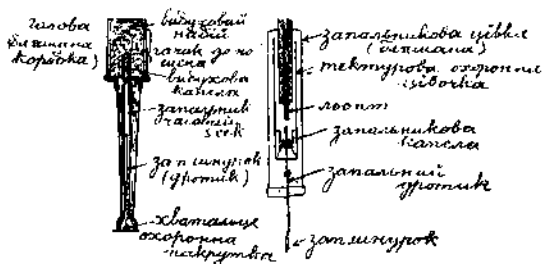 голова
(бляшана
коробка)
вибуховий
набій
гачик до по
яса
вибухова
капсля
запальник
часовий
зап шнурок
(дротик)
хвательце
охоронна
накрутка
запальникова цівка
(бляшана)
тектурова охоронна
цівочка
льонт
запальникова
капсля
запальний
дротик
зап шнурок